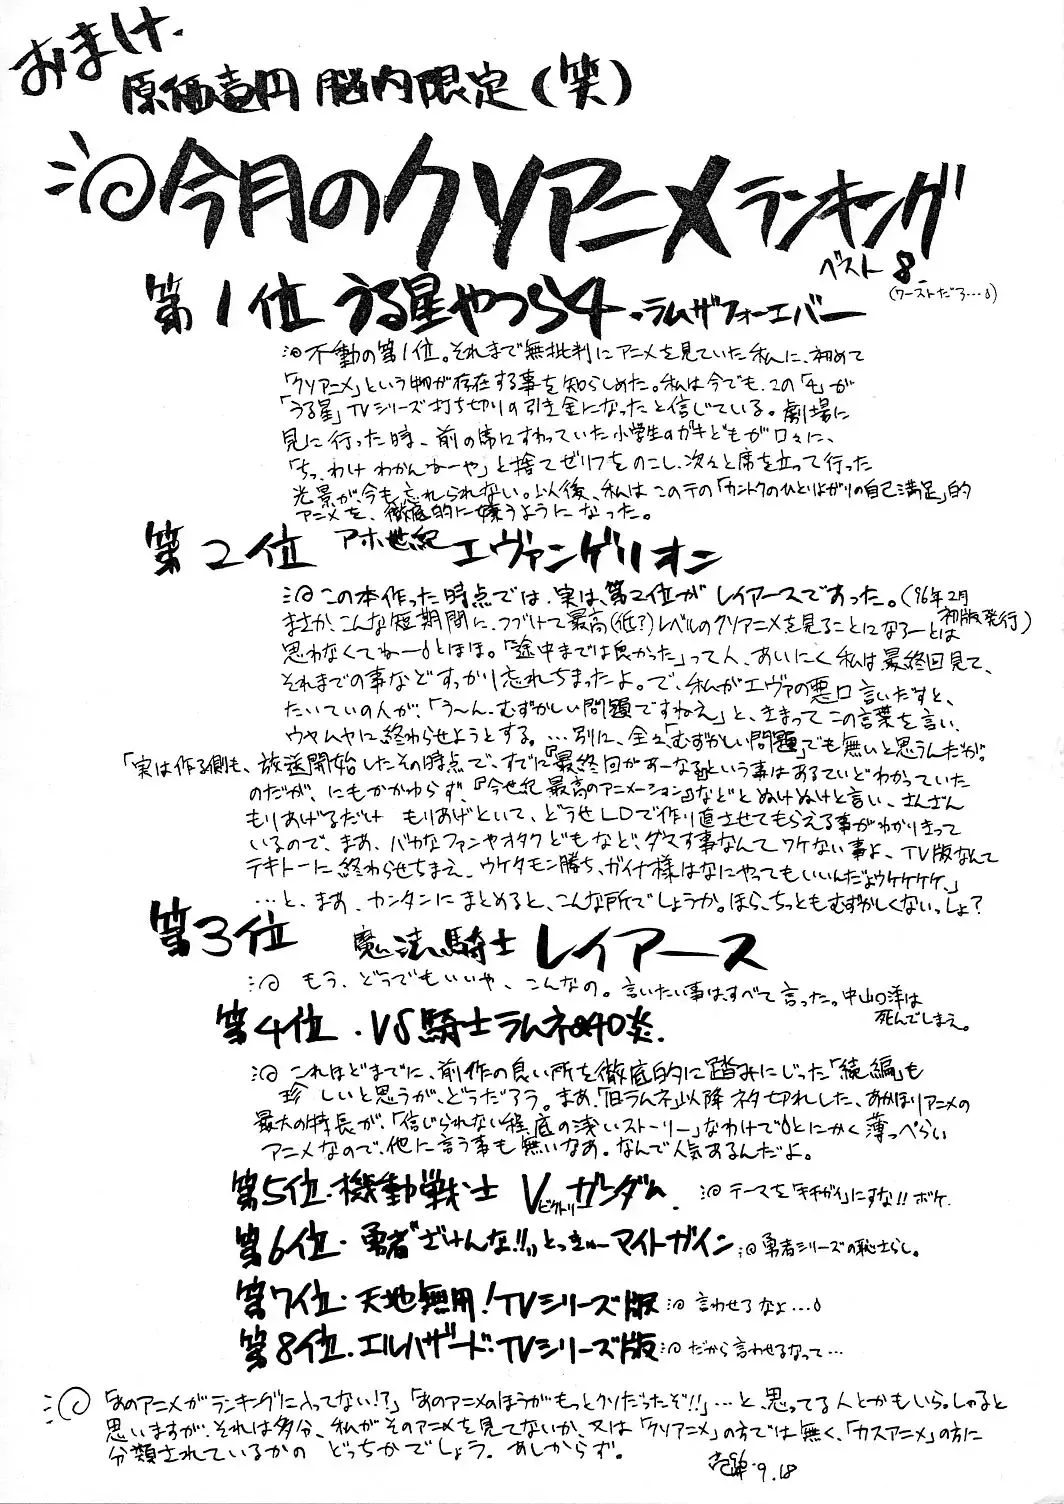 おまけ.
原価壱円 脳内限定(笑)
今月のクソアニメランキング
ベスト8
(ワーストだろ…)
第1位 うる星やつら4・ラムザフォーエバー
不動の第1位。それまで無批判にアニメを見ていた私に、初めて
「クソアニメ」という物が存在する事を知らしめた。私は今でも、この「4」が
「うる星」TVシリーズ打ち切りの引き金になったと信じている。劇場に
見に行った時、前の席にすわっていた小学生のガキどもが口々に、
「ちっ、わけわかんねーや」と捨てゼリフをのこし、次々と席を立って行った
光景が、今も忘れられない。以後、私はこの手の「カントクのひとりよがりの自己満足」的
アニメを、徹底的に嫌うようになった。
第2位 アホ世紀 エヴァンゲリオン
この本作った時点では、実は、第2位がレイアースであった。(96年2月
初版発行)
まさか、こんな短期間に、つづけて最高(低?)レベルのクソアニメを見ることになろーとは
思わなくてねー とほほ。「途中までは良かった」って人、あいにく私は最終回見て、
それまでの事などすっかり忘れちまったよ。で、私がエヴァの悪口言いだすと、
たいていの人が、「う〜ん、むずかしい問題ですねえ」と、きまってこの言葉を言い、
ウヤムヤに終わらせようとする。…別に、全々「むずかしい問題」でも無いと思うんだが。
「実は作る側も、放送開始したその時点で、すでに『最終回があーなる』という事はあるていどわかっていた
のだが、にもかかわらず、『今世紀最高のアニメーション』などとぬけぬけと言い、さんざん
もりあげるだけ もりあげといて、どうせLDで作り直させてもらえる事がわかりきって
いるので、まあ、バカなファンやオタクどもなど、ダマす事なんてワケない事よ、TV版なんて
テキトーに終わらせちまえ、ウケタモン勝ち、ガイナ様はなにやってもいいんだようケケケケ、」
…と、まあ、カンタンにまとめると、こんな所でしょうか。ほら、ちっともむずかしくないっしょ?
第3位 魔法騎士 レイアース
もう、どうでもいいや、こんなの。言いたい事は、すべて言った。中山口洋は
死んでしまえ。
第4位・VS騎士ラムネ&40炎.
これほどまでに、前作の良い所を徹底的に踏みにじった「続編」も
珍しいと思うが、どうだろう。まあ、「旧ラムネ」以降ネタ切れした、あかほりアニメの
最大の特長が、「信じられない程底の浅いストーリー」なわけで とにかく薄っぺらい
アニメなので、他に言う事も無いなあ。なんで人気あるんだよ。
第5位・機動戦士 Vガンダム
ビクトリー
テーマを「キチガイ」にすな!!ボケ.
第6位・勇者“ざけんな!!”とっきゅーマイトガイン 勇者シリーズの恥さらし。
第7位・天地無用!TVシリーズ版 言わせるなよ…
第8位・エルハザード・TVシリーズ版 だから言わせるなって…
「あのアニメがランキングに入ってない!?」「あのアニメのほうがもっとクソだったぞ!!」…と、思ってる人とかもいらっしゃると
思いますが、それは多分、私がそのアニメを見てないか、又は「クソアニメ」の方では無く、「カスアニメ」の方に
分類されているかの どっちかでしょう。あしからず。
9.18